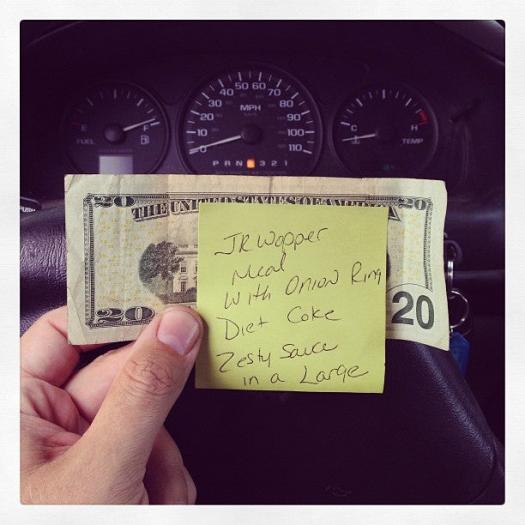 E
F
FUEL
0
10
20
30
40
50
60
70
80
90
100
110
MPH
P R N 3 2 1
C
H
TEMP
20
THE UNITED STATES OF AMERICA
20
20
20
JR Wopper
Meal
With Onion Ring
Diet Coke
Zesty Sauce
in a Large